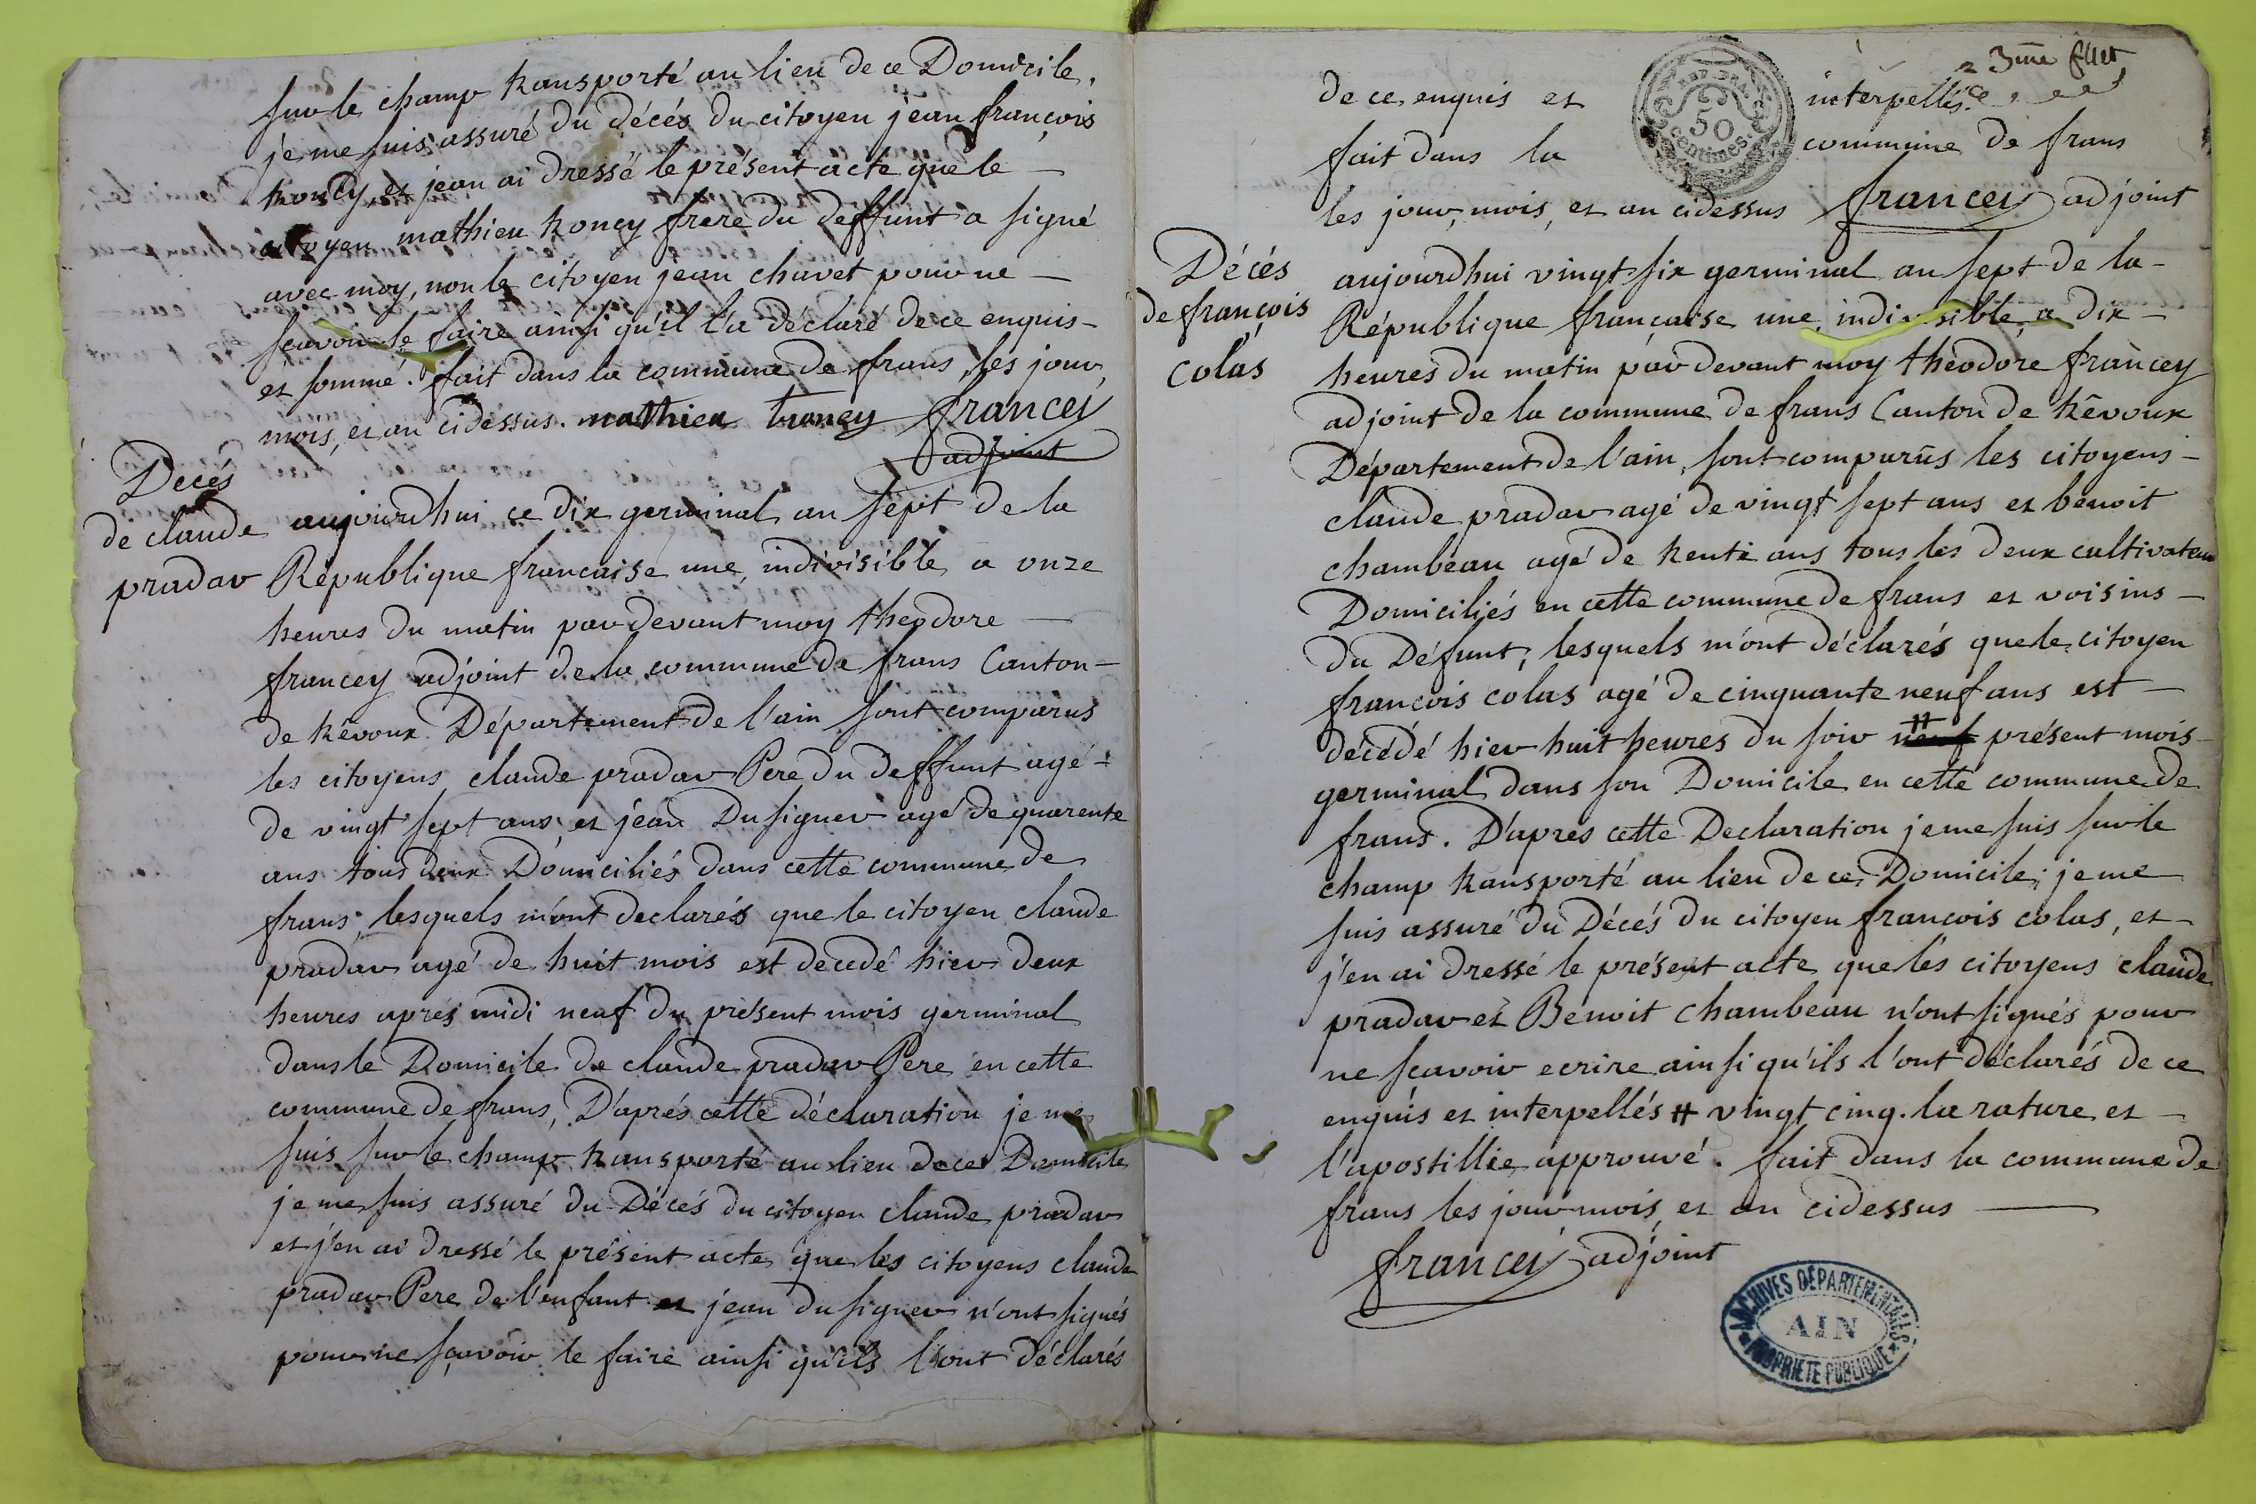 sur le champ transporté au lieu de ce Domicile,
je me suis assuré du décés du citoyen jean françois
troncy, et jean ai dressé le présent acte que le —
citoyen mathieu troncy frere du deffunt a signé
avec moy, non le citoyen jean chavet pour ne —
sçavoir le faire ainsi qu'il l'a déclaré de ce enquis —
et sommé. fait dans la commune de frans, les jour,
mois, et an cidessus. mathieu troncy francey
adjoint
Decés
de claude
pradar
aujourdhui ce dix germinal an sept de la
République francaise une, indivisible, a onze
heures du matin par devant moy théodore —
francey adjoint de la commune de frans Canton —
de trêvoux Département de l'ain sont comparus
les citoyens claude pradar Pere du deffunt agé
de vingt sept ans et jean Dusigner agé de quarente
ans tous deux Domiciliés dans cette commune de
frans, lesquels m'ont declarés que le citoyen claude
pradar agé de huit mois est decedé hier deux
heures aprés midi neuf du présent mois germinal
dans le Domicile de claude pradar Pere en cette
commune de frans, D'aprés cette déclaration je me
suis sur le champ transporté au lieu de ce Domicile
je me suis assuré du Décés du citoyen claude pradar
et j'en ai dressé le présent acte que les citoyens claude
pradar Pere de l'enfant et jean dusigner n'ont signés
pour ne sçavoir le faire ainsi qu'ils l'ont déclarés
3me fllet
de ce enquis et interpellés.
50
Centimes
fait dans la commune de frans
les jour, mois, et an cidessus francey adjoint
Décés
de françois
colas
aujourdhui vingt six germinal an sept de la —
République francaise une, indivisible, a dix —
heures du matin par devant moy théodore francey
adjoint de la commune de frans Canton de trêvoux
Département de l'ain, sont comparûs les citoyens —
claude pradar agé de vingt sept ans et benoit
chambeau agé de trente ans tous les deux cultivateurs
Domiciliés en cette commune de frans et voisins —
du Défunt, lesquels m'ont déclarés que le citoyen
francois colas agé de cinquante neuf ans est —
décédé hier huit heures du soir # neuf présent mois
germinal dans son Domicile en cette commune de
frans. D'apres cette Declaration je me suis sur le
champ transporté au lieu de ce Domicile, je me
suis assuré du Décés du citoyen francois colas, et —
j'en ai dressé le présent acte que les citoyens claude
pradar et Benoit chambeau n'ont signés pour
ne sçavoir ecrire ainsi qu'ils l'ont déclarés de ce
enquis et interpellés # vingt cinq. la rature et —
l'apostillie approuvé. fait dans la commune de
frans les jour mois et an cidessus —
francey adjoint
ARCHIVES DÉPARTEMENTALES
AIN
PROPRIÉTÉ PUBLIQUE